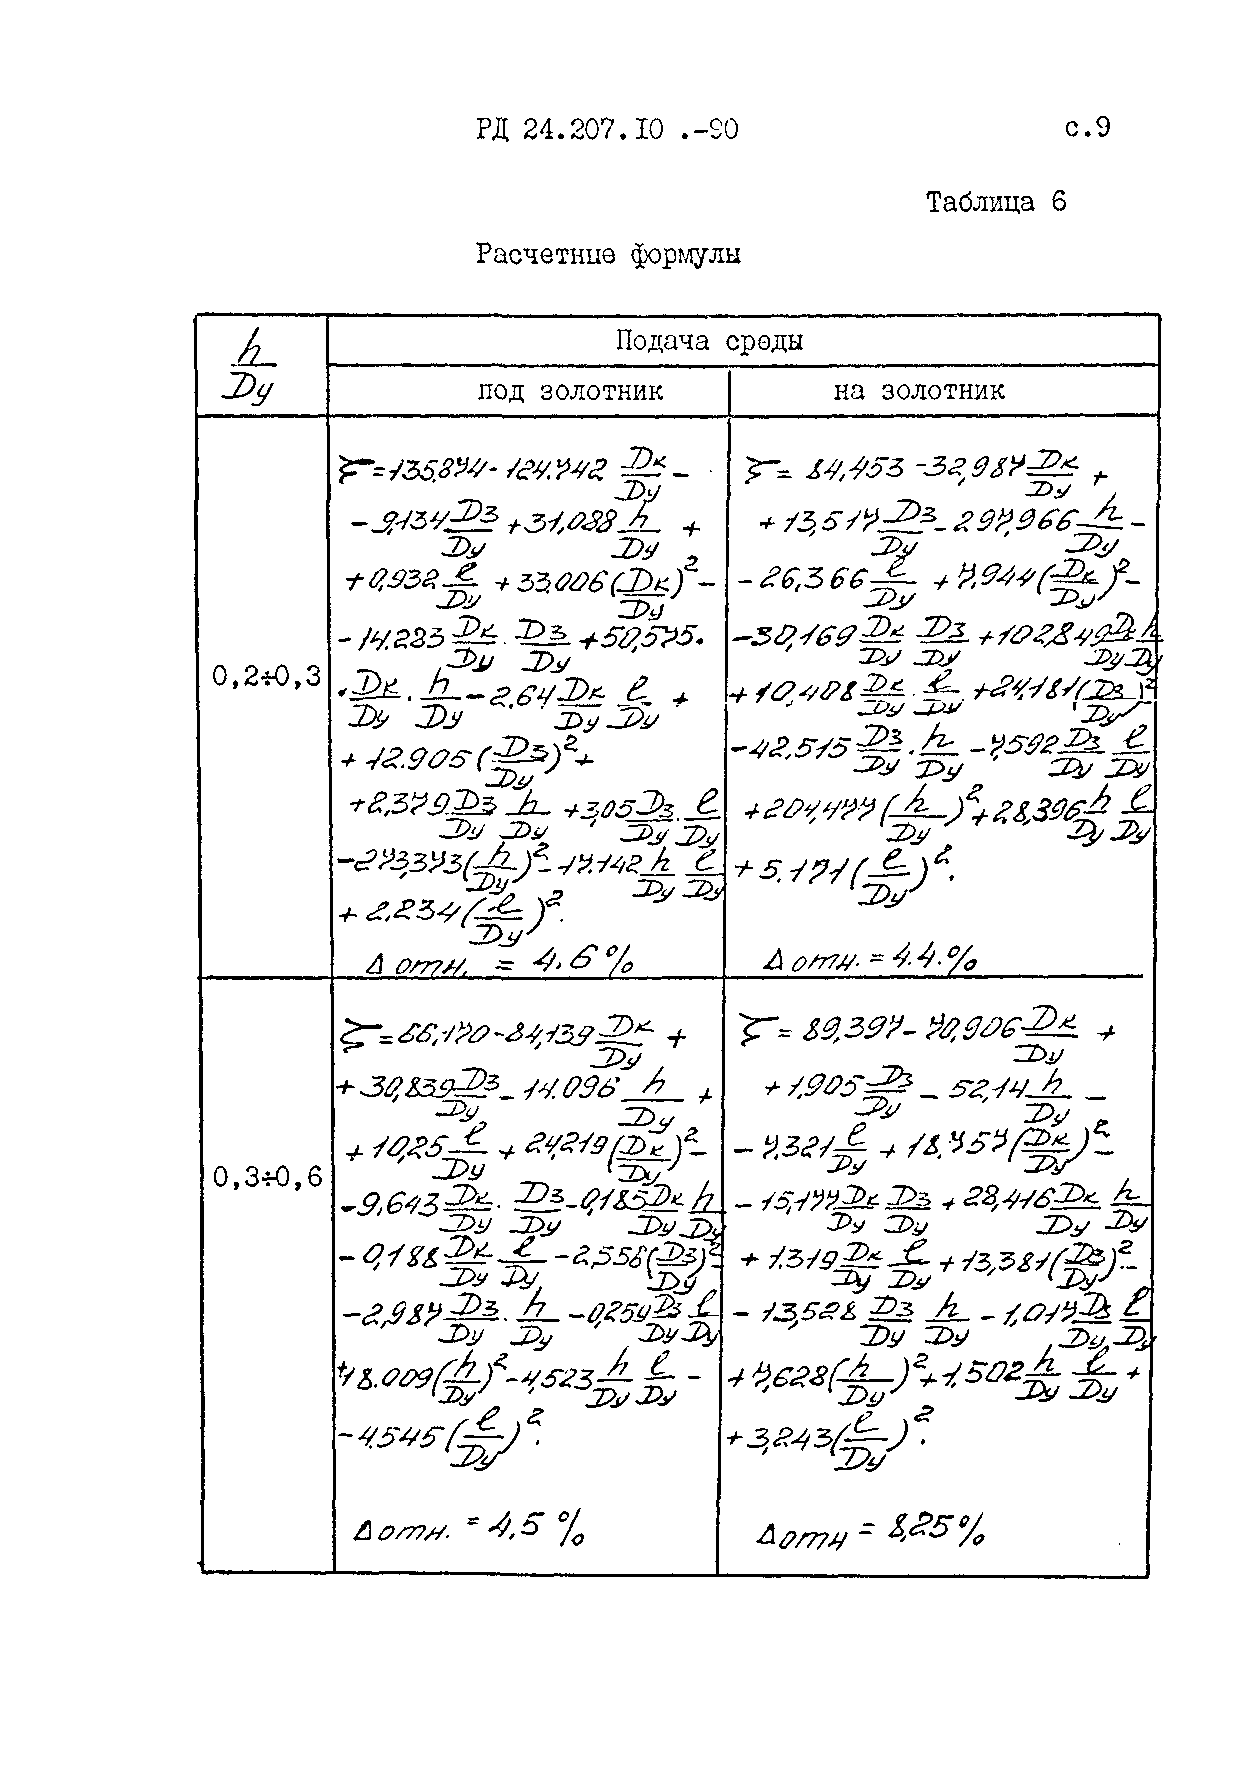 РД 24.207.10 .-90 с.9
Таблица 6
Расчетные формулы
h/Dy
Подача среды
под золотник
на золотник
0,2÷0,3
ζ=135.874-124.742 Dк/Dy -
- 9,134 Dз/Dy + 31,088 h/Dy +
+ 0,932 ℓ/Dy + 33.006 (Dк/Dy)² -
- 14.283 Dк/Dy · Dз/Dy + 50,575 ·
· Dк/Dy · h/Dy - 2.64 Dк/Dy ℓ/Dy +
+ 12.905 (Dз/Dy)² +
+ 2,379 Dз/Dy h/Dy + 3,05 Dз/Dy · ℓ/Dy
- 273,373 (h/Dy)² - 17.142 h/Dy ℓ/Dy
+ 2.234 (ℓ/Dy)².
Δ отн. = 4.6 %
ζ = 84,453 - 32,987 Dк/Dy +
+ 13,517 Dз/Dy - 297,966 h/Dy -
- 26,366 ℓ/Dy + 7.944 (Dк/Dy)² -
- 30,169 Dк/Dy Dз/Dy + 102,849 Dк/Dy h/Dy
+ 10,408 Dк/Dy · ℓ/Dy + 24,181 (Dз/Dy)²
- 42,515 Dз/Dy · h/Dy - 7,592 Dз/Dy ℓ/Dy
+ 204,477 (h/Dy)² + 28,396 h/Dy ℓ/Dy
+ 5.171 (ℓ/Dy)².
Δ отн. = 4.4.%
0,3÷0,6
ζ = 66,170 - 84,139 Dк/Dy +
+ 30,839 Dз/Dy - 14.096 h/Dy +
+ 10,25 ℓ/Dy + 24,219 (Dк/Dy)² -
- 9,643 Dк/Dy · Dз/Dy - 0,185 Dк/Dy h/Dy
- 0,188 Dк/Dy ℓ/Dy - 2,558 (Dз/Dy)²
- 2,987 Dз/Dy · h/Dy - 0,259 Dз/Dy ℓ/Dy
+ 18.009 (h/Dy)² - 4,523 h/Dy ℓ/Dy -
- 4.545 (ℓ/Dy)².
Δ отн. = 4,5 %
ζ = 89,397 - 70,906 Dк/Dy +
+ 1,905 Dз/Dy - 52,14 h/Dy -
- 7,321 ℓ/Dy + 18,757 (Dк/Dy)² -
- 15,177 Dк/Dy Dз/Dy + 28,416 Dк/Dy h/Dy
+ 1.319 Dк/Dy ℓ/Dy + 13,381 (Dз/Dy)² -
- 13,528 Dз/Dy h/Dy - 1,017 Dз/Dy ℓ/Dy
+ 7,628 (h/Dy)² + 1,502 h/Dy ℓ/Dy +
+ 3,243 (ℓ/Dy)².
Δ отн = 8,25 %